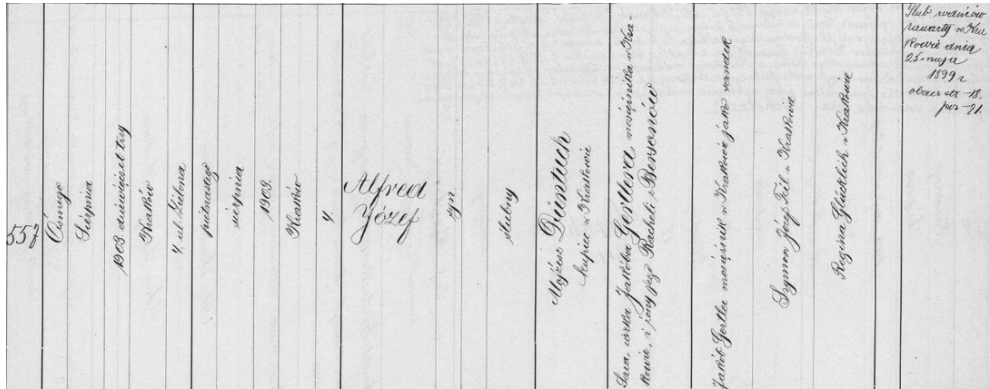 557
Ósmego
Sierpnia
1903 dziewięset trzy
Kraków
7. ul Zielona
pietnastego
sierpnia
1903.
Kraków
7.
Alfred
Józef
syn
ślubny
Mojżesz Düntuch
kupiec w Krakowie
Sara, córka Jakóba Gertlera mosiężnika w Kra-
kowie, i żony jego Racheli Bersonów
Jakób Gertler mosiężnik w Krakowie jako sandek
Szymon Józef Feil w Krakowie
Regina Glücklich w Krakowie
Ślub rodziców
zawarty w Kra
kowie dnia
25. maja
1899 r
obacz str. 18.
poz 71.